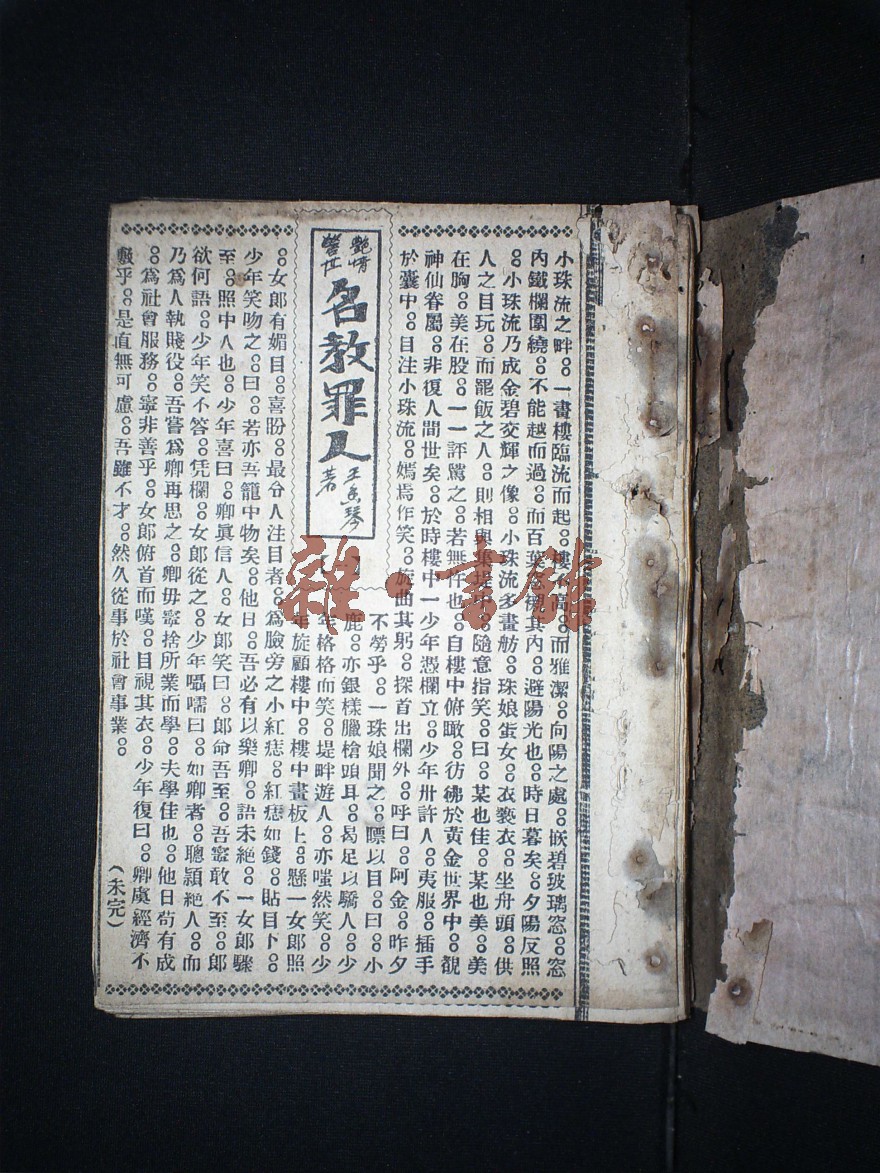 小珠流之畔。一畫樓臨流而起。樓不高。而雅潔。向陽之處。嵌碧玻璃窓。窓
內鐵欄圍繞。不能越而過。而百葉窓櫬其內。避陽光也。時日暮矣。夕陽反照
。小珠流乃成金碧交輝之像。小珠流多畫舫。珠娘蛋女。衣褻衣。坐舟頭。供
人之目玩。而罷飯之人。則相與集堤中。隨意指笑。曰。某也佳。某也美。美
在胸。美在股。一一評罵之。若無忤也。自樓中俯瞰。彷彿於黃金世界中。覩
神仙眷屬。非復人間世矣。於時樓中一少年憑欄立。少年卅許人。夷服。插手
於囊中。目注小珠流。嫣焉作笑。旋曲其躬。探首出欄外。呼曰。阿金。昨夕
艷情
警世
名教罪人
著
【一】
不勞乎。一珠娘聞之。瞟以目。曰。小
鹿。亦銀樣臘槍頭耳。曷足以驕人。少
年格格而笑。堤畔遊人。亦嗤然笑。少
年旋顧樓中。樓中畫板上。懸一女郎照
。女郎有媚目。喜盼。最分人注目者。爲臉旁之小紅痣。紅痣如錢。貼目卜。
少年笑吻之。曰。若亦吾籠中物矣。他日。吾必有以樂卿。語未絕。一女郎驟
至。照中人也。少年喜曰。卿眞信人。女郎笑曰。郎命吾至。吾寧敢不至。郎
欲何語。少年笑不答。凭欄。女郎從之。少年囁嚅曰。如卿者。聰頴絕人。而
乃爲人執賤役。吾嘗爲卿再思之。卿毋寧捨所業而學。夫學佳也。他日苟有成
。爲社會服務。寧非善乎。女郎俯首而嘆。目視其衣。少年復曰。卿虞經濟不
敷乎。是直無可慮。吾雖不才。然久從事於社會事業。
（未完）
雜·書館